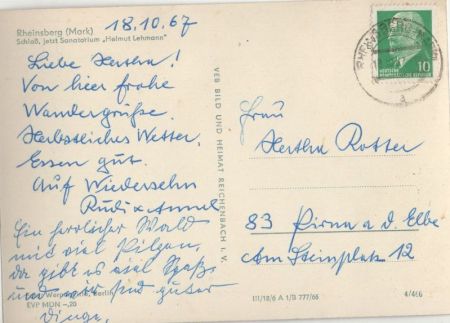 18.10.67
Rheinsberg (Mark)
Schloß, jetzt Sanatorium „Helmut Lehmann"
Liebe Hertha!
Von hier frohe
Wandergrüße.
Herbstliches Wetter,
Essen gut.
Auf Wiedersehn
Rudi + Annel
Ein herrlicher Wald
mit viel Pilzen,
da gibt es viel Spaß
und wir sind guter
Dinge.
Berlin
EVP MDN -,20
VEB BILD UND HEIMAT REICHENBACH I. V.
10
DEUTSCHE
DEMOKRATISCHE REPUBLIK
Frau
Hertha Rotter
83 Pirna a. d. Elbe
Am Steinplatz 12
III/18/6 A 1/B 777/66
4/466